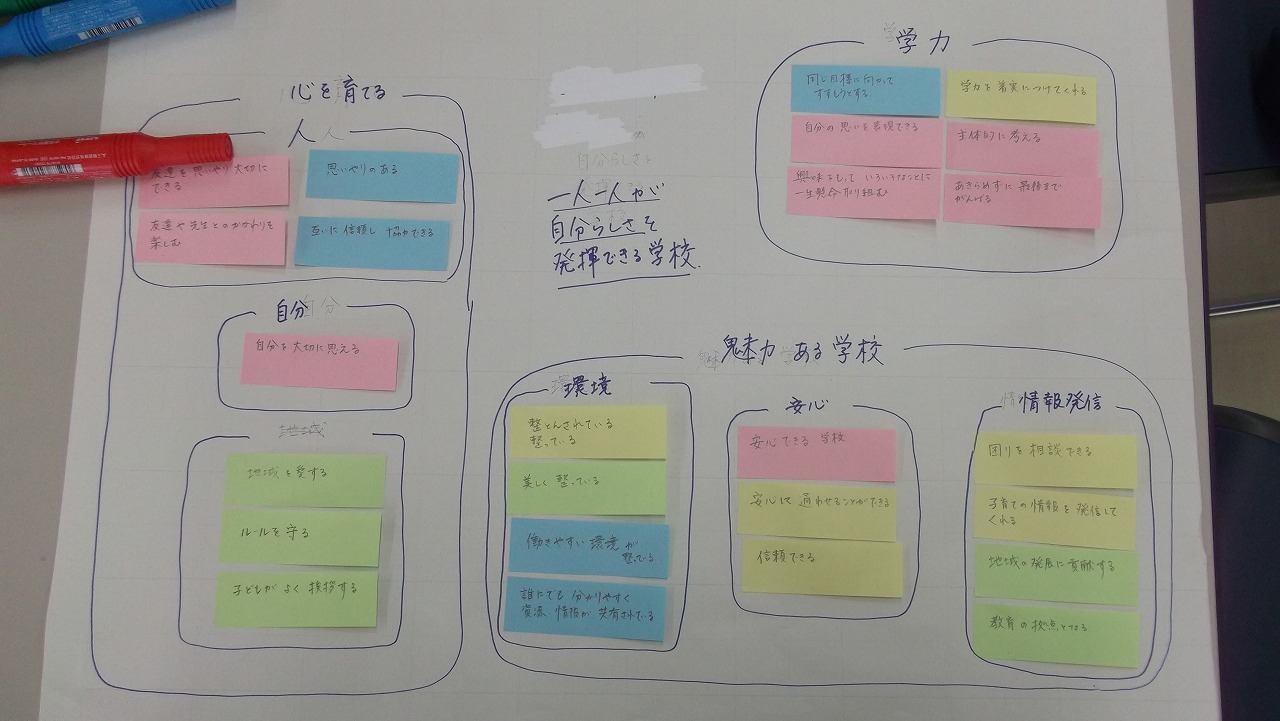 心を育てる
人
友達を思いやり大切に
できる
思いやりのある
友達や先生とのかかわりを
楽しむ
互いに信頼し 協力できる
自分
自分を大切に思える
地域
地域を愛する
ルールを守る
子どもが よく 挨拶する
自分らしさを
一人一人が
自分らしさを
発揮できる学校
学力
同じ目標に向かって
学力を着実につけてくれる
自分の思いを表現できる
主体的に考える
興味をもって いろいろなことに
一生懸命取り組む
あきらめずに 最後まで
がんばる
魅力ある学校
環境
整とんされている
整っている
美しく 整っている
働きやすい環境が
整っている
誰にでも 分かりやすく
資源、情報が 共有されている
安心
安心できる 学校
安心して 通わせることができる
信頼できる
情報発信
困りを相談できる
子育ての情報を発信して
くれる
地域の発展に貢献する
教育の拠点となる